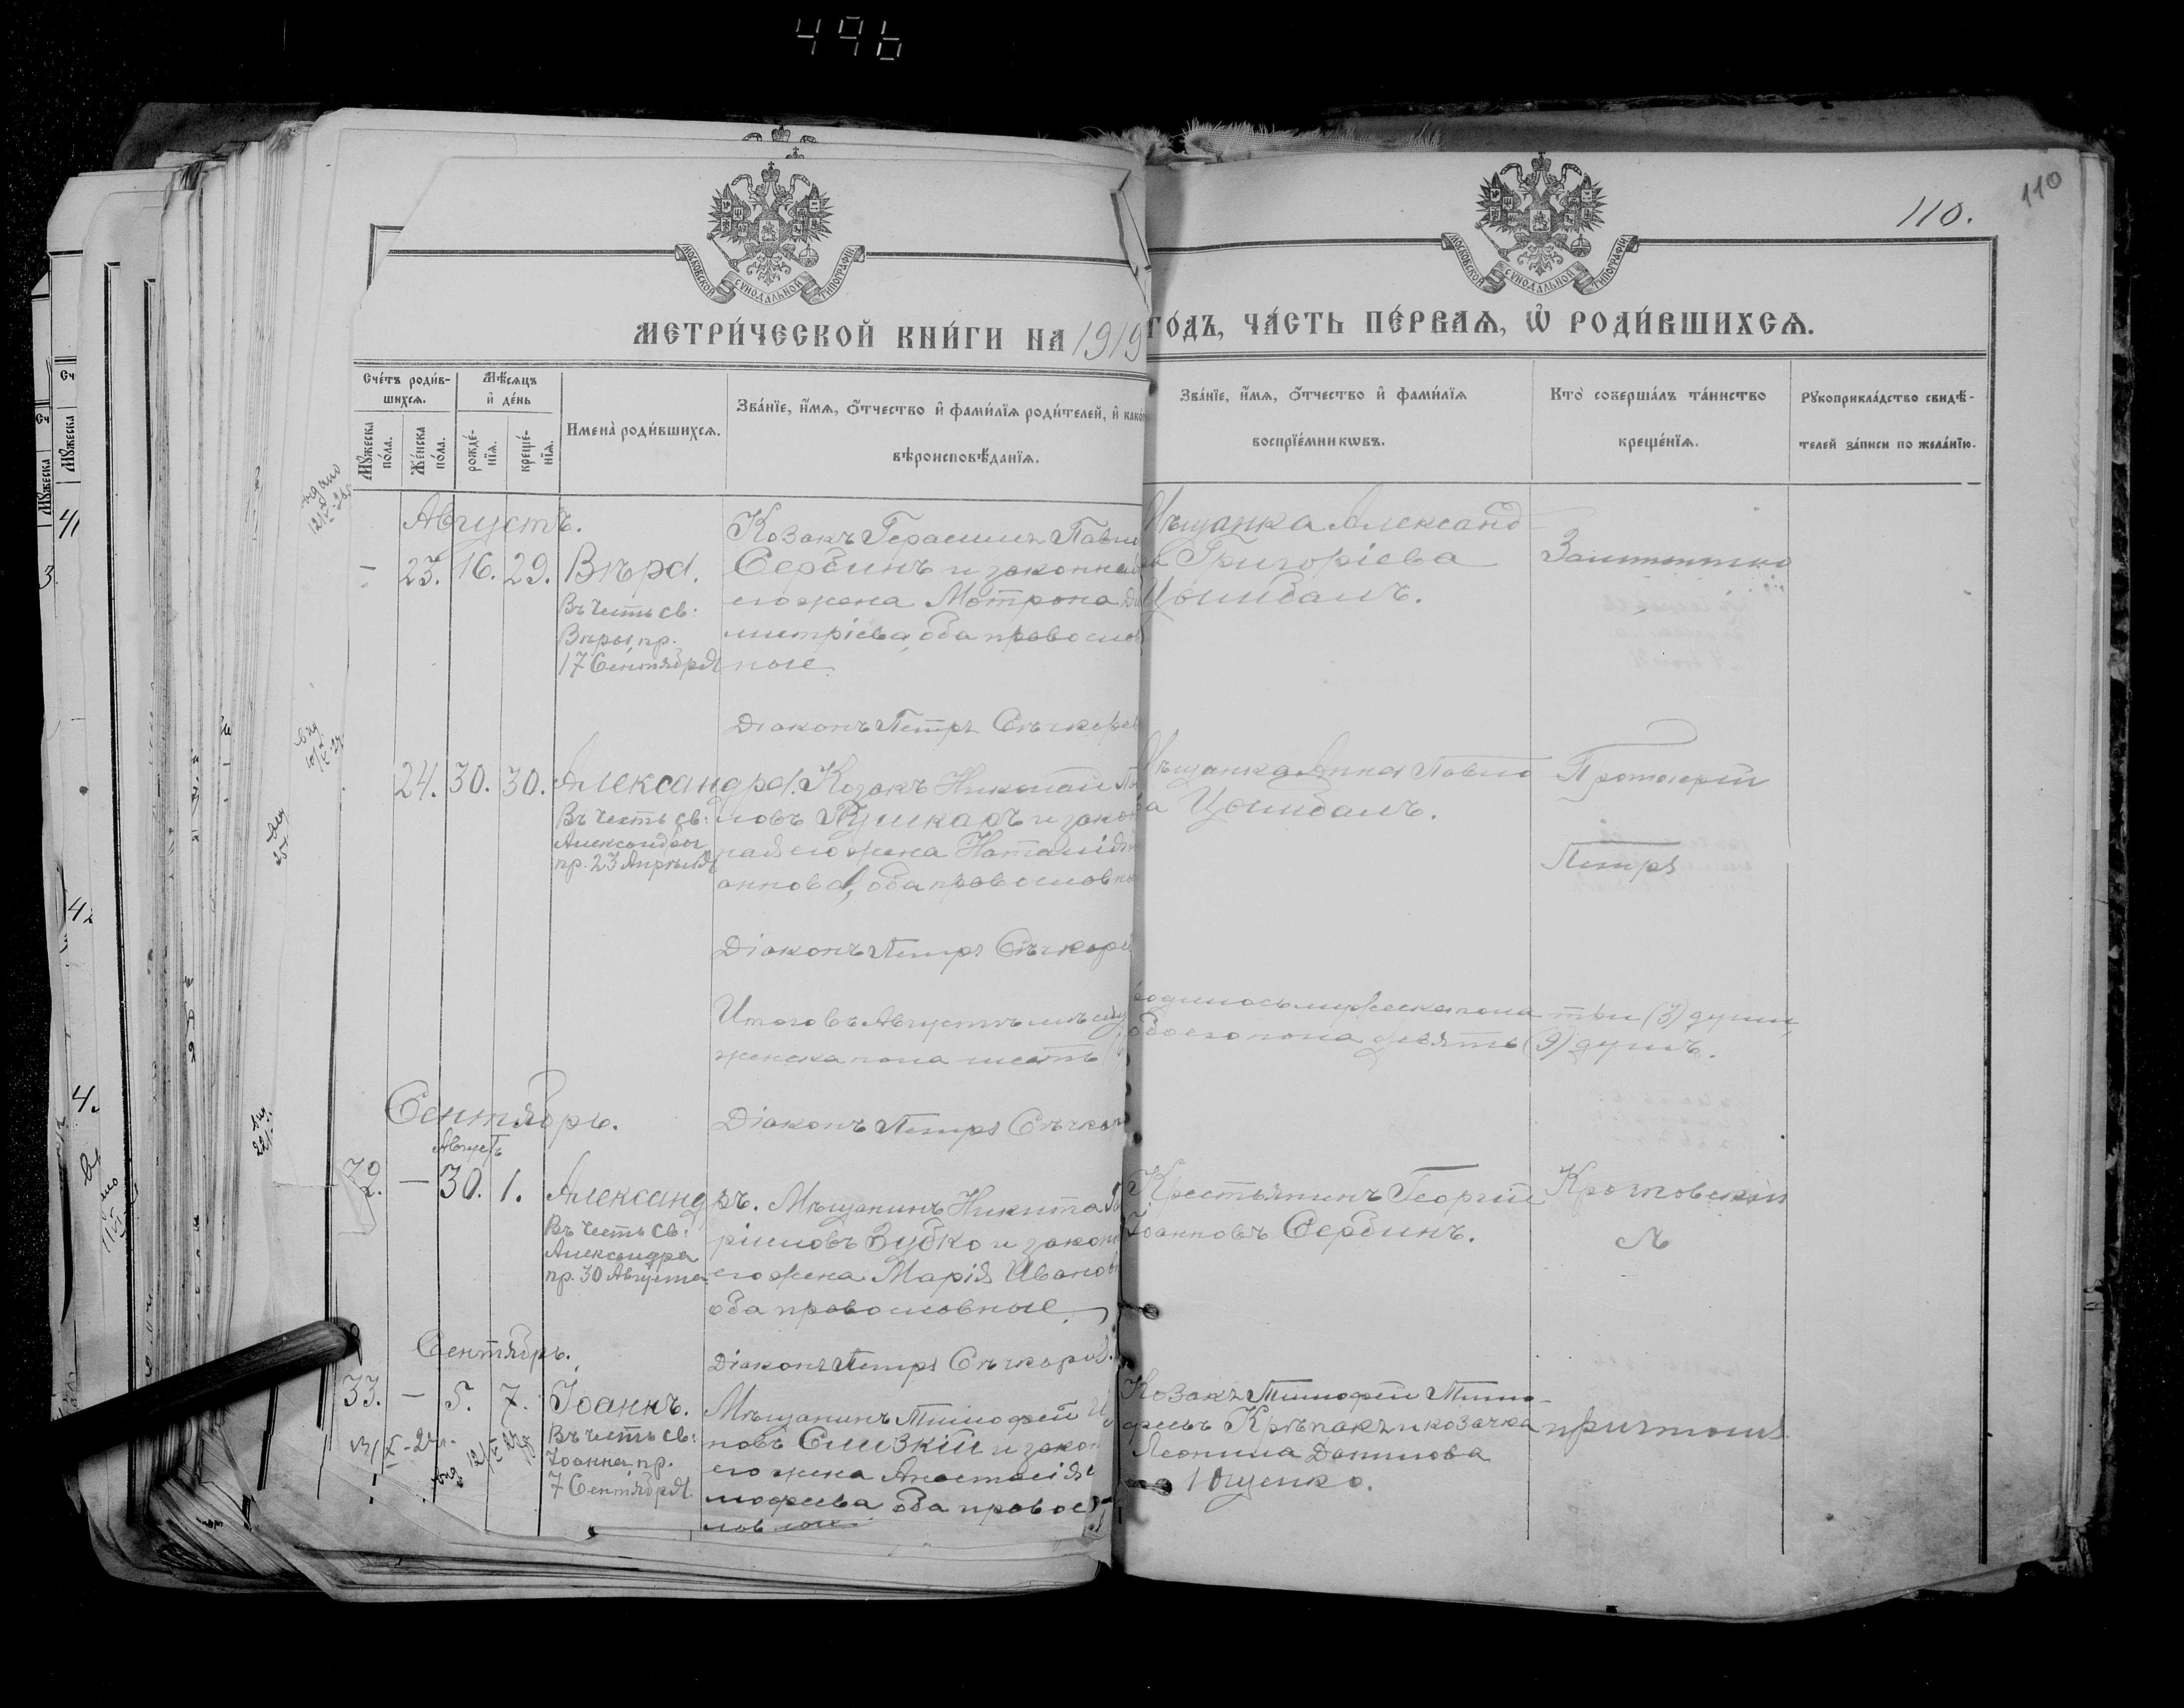 496
110
110.
МОСКОВСКОЙ СѴНОДАЛЬНОЙ ТИПОГРАФІИ
МОСКОВСКОЙ СѴНОДАЛЬНОЙ ТИПОГРАФІИ
МЕТРИ́ЧЕСКОЙ КНИ́ГИ НА 1919 ГО́ДЪ, ЧА́СТЬ ПЕ́РВАЯ, Ѽ РОДИ́ВШИХСЯ.
Сче́тъ роди́в-
шихся.
Мѣ́сяцъ
и҆ де́нь
Мꙋ́жеска по́ла.
Же́нска по́ла.
рожде́-
нїя.
креще́-
нїя.
Имена̀ роди́вшихся.
Зва́нїе, и҆́мя, ѻ҆́тчество и҆ фами́лїя роди́телей, и҆ како
вѣроисповѣ́данїя.
Зва́нїе, и҆́мя, ѻ҆́тчество и҆ фами́лїя
воспрїе́мникѡвъ.
Кто̀ соверша́лъ та́инство
креще́нїя.
Рꙋкоприкла́дство свидѣ́-
телей за́писи по жела́нїю.
Августъ.
– 23. 16. 29. Вѣра.
Въ честь св:
Вѣры, пр.
17 Сентября
Козакъ Герасимъ Павло
Сербинъ и законная
его жена Мотрона Ди
митріева, оба правослов
ные.
Діаконъ Петръ Сѣчкарев
Мѣщанка Александ
ра Григоріева
Цымбалъ.
24. 30. 30. Александра.
Въ честь св:
Александры
пр. 23 Апрѣля
Козакъ Николай Па
ловъ Пушкаръ и закон
ная его жена Наталія І
аннова, оба православны
Діаконъ Петръ Сѣчкаре
Мѣщанка Анна Павло
ва Цымбалъ.
Протоіерей
Петръ
Итого въ Августѣ мѣсяц родилось мужеска пола три (3) души,
женска пола шесть обоего пола девять (9) душъ.
Діаконъ Петръ Сѣчкар
Сентябрь.
Августъ
32. – 30. 1. Александръ.
Въ честь св:
Александра
пр. 30 Августа
Мѣщанинъ Никита
ріиловъ Зубко и законн
его жена Марія Иванов
оба православные.
Діаконъ Петръ Сѣчкарев.
Крестьянинъ Георгій
Іоанновъ Сербинъ.
Сентябрь.
33. – 5. 7. Іоаннъ.
Въ честь св:
Іоанна пр.
7 Сентября.
Мѣщанинъ Тимофей И
новъ Слизкій и закон
его жена Анастасія
мофеева оба правос
лавные.
Козакъ Тимофей Тимо-
феевъ Крѣпакъ и козачка
Леонила Данилова
Ющенко.